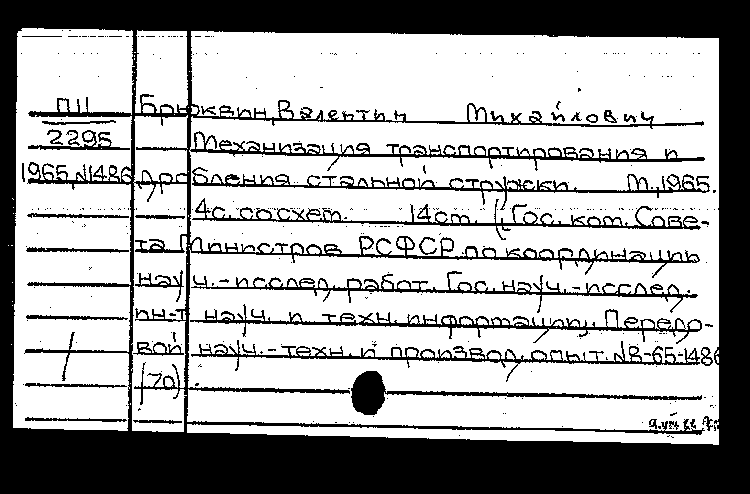 ПШ Брюквин, Валентин Михайлович
2295 Механизация транспортирования и
1965, №1486 дробления стальной стружки. М., 1965.
4с. со схем. 14см. (Гос. ком. Сове-
та Министров РСФСР по координации
науч.-исслед. работ. Гос. науч.-исслед.
ин-т науч. и техн. информации. Передо-
вой науч.-техн. и производ. опыт. №8-65-1486
(70).